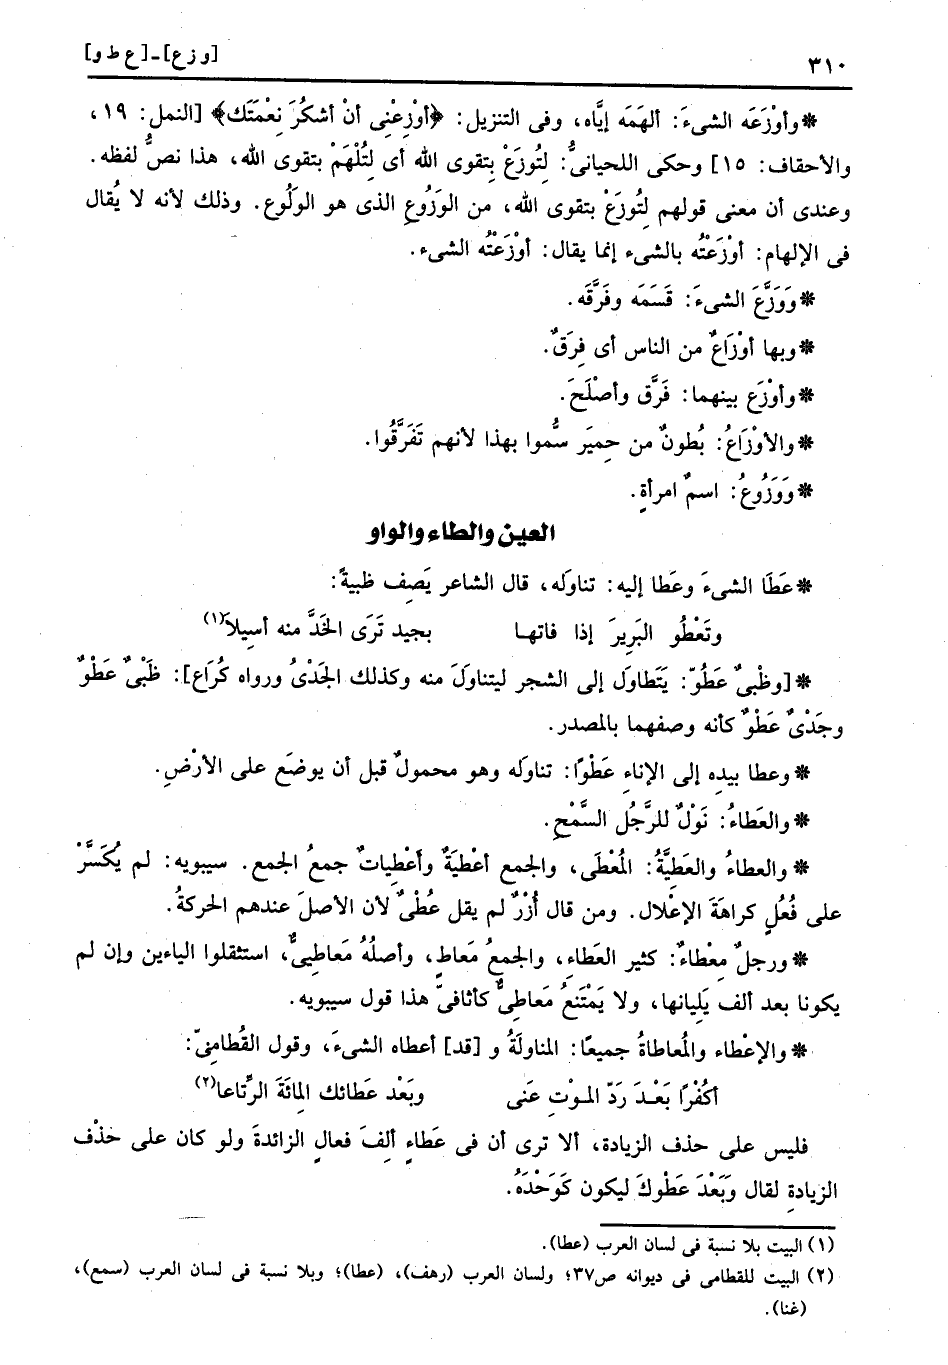 ٣١٠ [و ز ع] ـ [ع ط و]
* وأوْزَعَه الشىءَ: ألهَمَه إيَّاه، وفى التنزيل: ﴿أوْزِعْنِى أنْ أشكُرَ نِعْمَتَك﴾ [النمل: ١٩،
والأحقاف: ١٥] وحكى اللحيانىُّ: لِتُوزَعْ بِتقوى الله أى لِتُلْهَمْ بتقوى الله، هذا نصُّ لفظه.
وعندى أن معنى قولهم لِتُوزَعْ بتقوى الله، من الوَزُوعِ الذى هو الوَلُوع. وذلك لأنه لا يُقال
فى الإلهام: أوْزَعْتُه بالشىء إنما يقال: أوْزَعْتُه الشىء.
* وَوَزَّعَ الشىءَ: قَسَمَه وفَرَّقَه.
* وبها أوْزَاعٌ من الناس أى فِرَقٌ.
* وأوْزَع بينهما: فَرَّق وأصْلَحَ.
* والأوْزَاعُ: بُطونٌ من حِميَر سُّموا بهذا لأنهم تَفَرَّقُوا.
* وَوَزُوعُ: اسمُ امرأةٍ.
العين والطاء والواو
* عَطَا الشىءَ وعَطا إليه: تناوَله، قال الشاعر يَصِف ظبيةً:
وتَعْطُو البَرِيرَ إذا فاتها بجيد تَرَى الخَدَّ منه أسِيلاً(١)
* [وظْبىٌ عَطُوّ: يَتَطاوَل إلى الشجر ليتناوَلَ منه وكذلك الجَدْىُ ورواه كُرَاع]: ظَبْىٌ عَطْوٌ
وجَدْىٌ عَطْوٌ كأنه وصفهما بالمصدر.
* وعطا بيدِه إلى الإناءِ عَطْوًا: تناوَله وهو محمولٌ قبل أن يوضَع على الأرْضِ.
* والعَطاءُ: نَوْلٌ للرَّجُلِ السَّمْحِ.
* والعطاءُ والعَطِيَّةُ: المُعْطَى، والجمع أعْطيَةٌ وأَعْطِياتٌ جمعُ الجمع. سيبويه: لم يُكَسَّرْ
على فُعُلٍ كراهَةَ الإعْلال. ومن قال أُزْرٌ لم يقل عُطْىٌ لأن الأصلَ عندهم الحركةُ.
* ورجلٌ مِعْطاءٌ: كثير العَطاءِ، والجمعُ مَعاطٍ، وأصلُهُ مَعاطِيىُّ، استثقلوا الياءين وإن لم
يكونا بعد ألف يَلِيانها، ولا يَمْتَنعُ مَعاطِىُّ كأثافىّ هذا قول سيبويه.
* والإعْطاء والمُعاطاةُ جميعًا: المناوَلَةُ و [قد] أعطاه الشىءَ، وقول القُطامىّ:
أكُفْرًا بَعْدَ رَدّ المَوْتِ عَنى وبَعْد عَطائك المِائَةَ الرِّتاعا(٢)
فليس على حذف الزيادة، ألا ترى أن فى عَطاءٍ ألِفَ فعالٍ الزائدةَ ولو كان على حذْف
الزيادةِ لقال وَبَعْدَ عَطْوِكَ لِيكون كَوَحْدَهُ.
(١) البيت بلا نسبة فى لسان العرب (عطا).
(٢) البيت للقطامى فى ديوانه ص٣٧؛ ولسان العرب (رهف)، (عطا)؛ وبلا نسبة فى لسان العرب (سمع)،
(غنا).